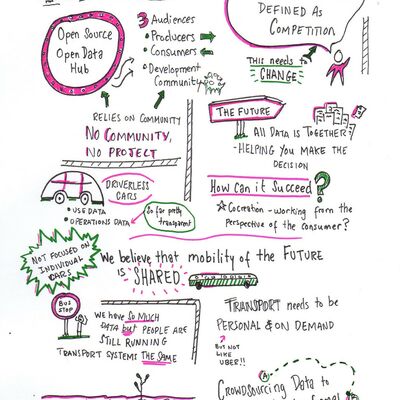 Open Source
Open Data
Hub
3 Audiences
• Producers
• Consumers
• Development
Community
RELIES ON COMMUNITY
NO COMMUNITY,
NO PROJECT
DRIVERLESS
CARS
• USE DATA
• OPERATIONS DATA
So far pretty
transparent
DEFINED AS
COMPETITION
THIS needs to
CHANGE
THE FUTURE
All DATA is TOGETHER
- HELPING YOU MAKE THE
DECISION
How can it Succeed?
Cocreation - working from the
perspective of the consumer?
NOT FOCUSED ON
INDIVIDUAL
CARS
We believe that mobility of the FUTURE
is SHARED
BUS
STOP
WE HAVE SO MUCH
DATA but PEOPLE ARE
STILL RUNNING
TRANSPORT SYSTEMS THE SAME
TRANSPORT needs to be
PERSONAL & ON DEMAND
BUT NOT
LIKE
UBER!!
CROWDSOURCING DATA to